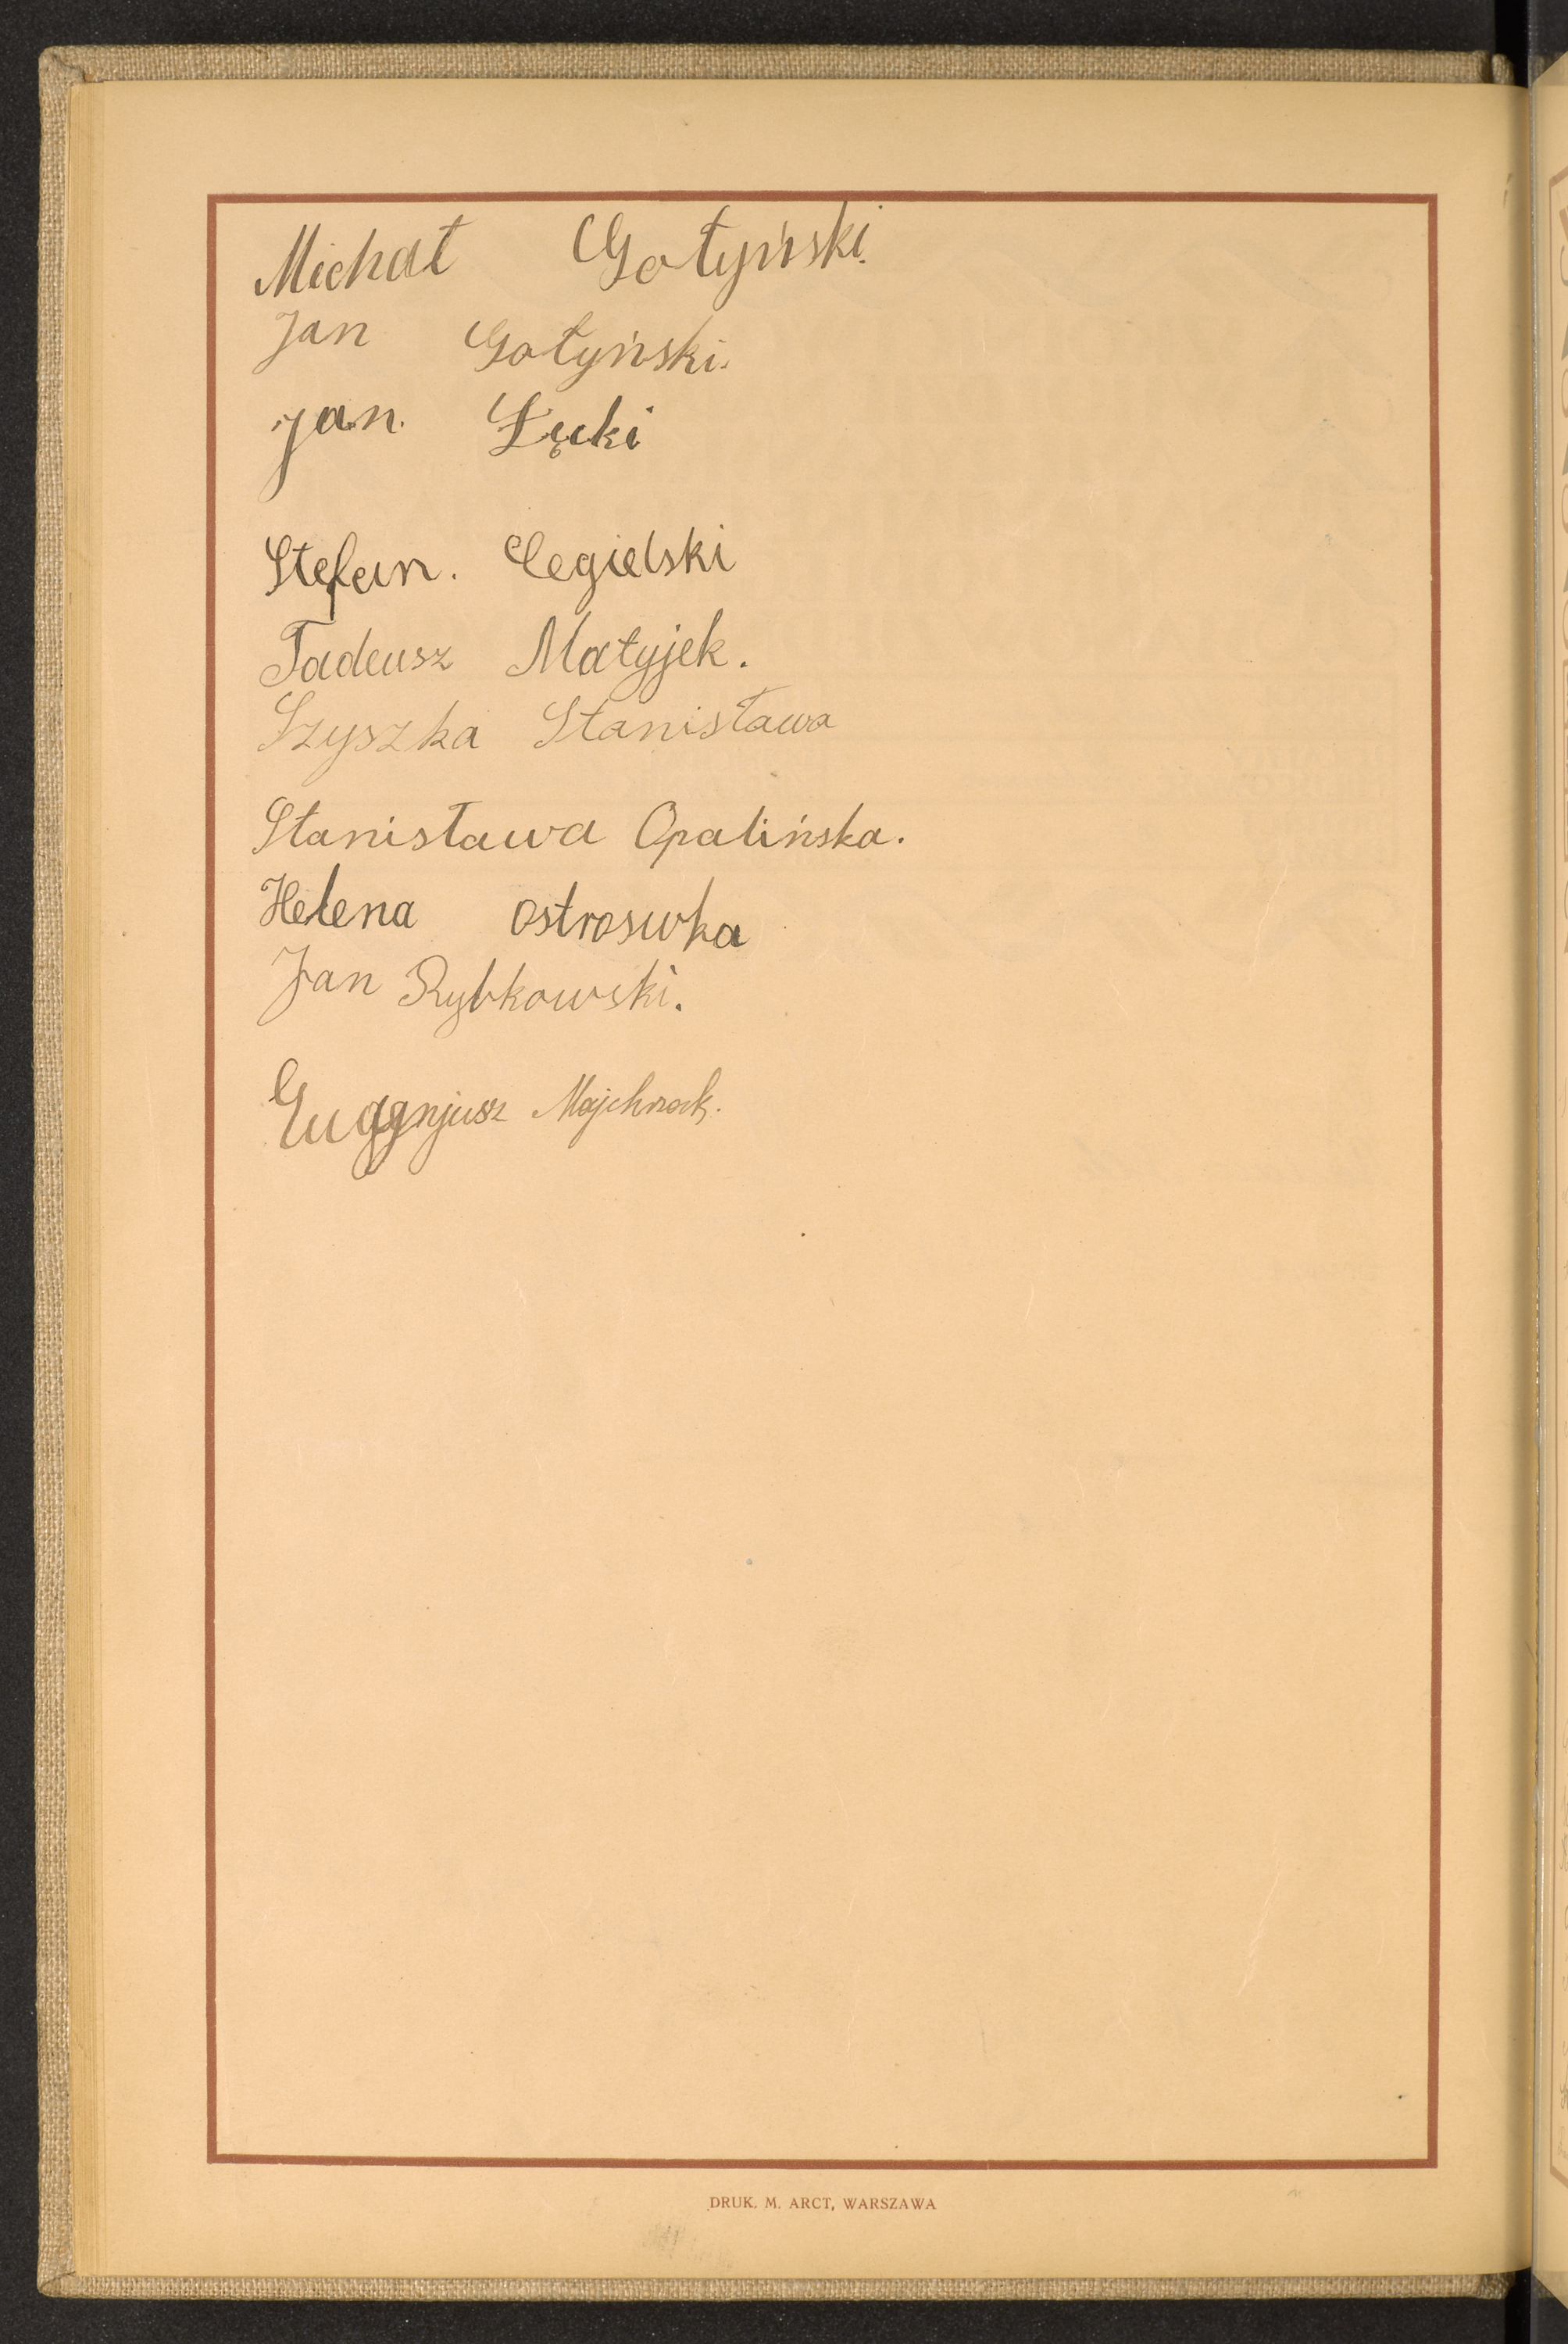 Michał Gołyński.
Jan Gołyński.
Jan. Łęcki
Stefan. Cegielski
Tadeusz Matyjek.
Szyszka Stanisława
Stanisława Opalińska.
Helena Ostroswka
Jan Rybkowski.
Majchrzak.
DRUK. M. ARCT, WARSZAWA